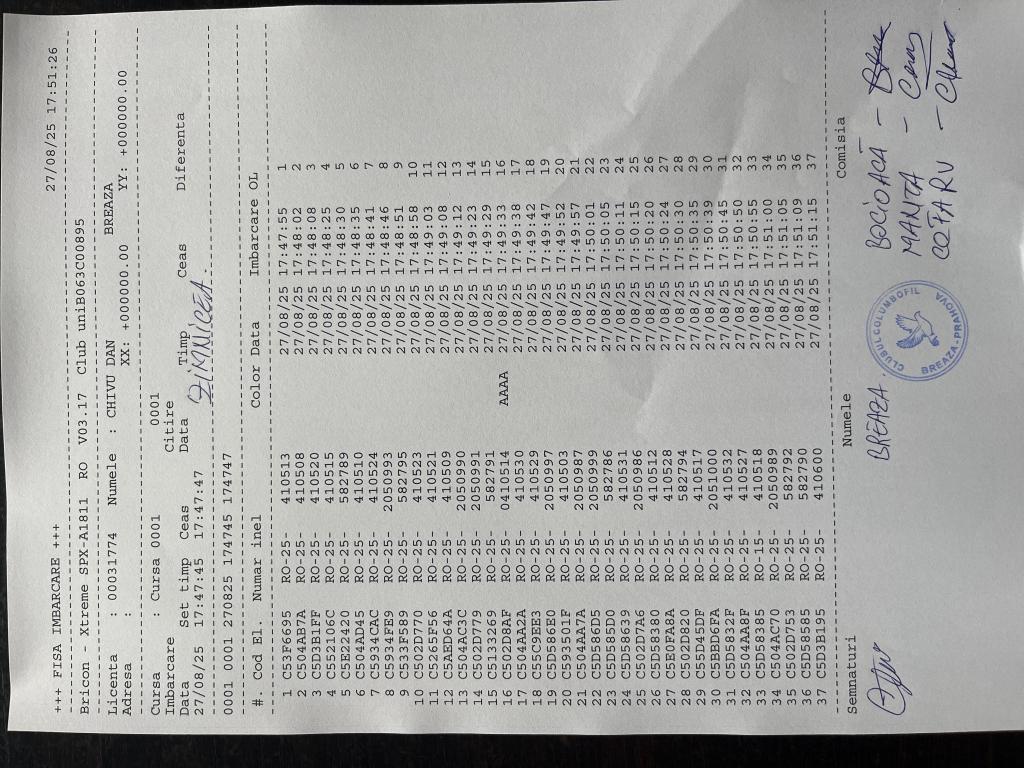 +++ FISA IMBARCARE +++ 27/08/25 17:51:26
Bricon - Xtreme SPX-A1811 RO V03.17 Club uniB063C00895
Licenta : 00031774 Numele : CHIVU DAN BREAZA
Adresa : XX: +000000.00 YY: +000000.00
Cursa : Cursa 0001 0001
Imbarcare Citire
Data Set timp Ceas Data Timp Ceas Diferenta
27/08/25 17:47:45 17:47:47 ZIMNICEA.
0001 0001 270825 174745 174747
#. Cod El. Numar inel Color Data Imbarcare OL
1 C53F6695 RO-25- 410513 27/08/25 17:47:55 1
2 C504AB7A RO-25- 410508 27/08/25 17:48:02 2
3 C5D3B1FF RO-25- 410520 27/08/25 17:48:08 3
4 C552106C RO-25- 410515 27/08/25 17:48:25 4
5 C5E22420 RO-25- 582789 27/08/25 17:48:30 5
6 C504AD45 RO-25- 410510 27/08/25 17:48:35 6
7 C5934CAC RO-25- 410524 27/08/25 17:48:41 7
8 C5934FE9 RO-25- 2050993 27/08/25 17:48:46 8
9 C533F589 RO-25- 582795 27/08/25 17:48:51 9
10 C502D770 RO-25- 410523 27/08/25 17:48:58 10
11 C5265F56 RO-25- 410521 27/08/25 17:49:03 11
12 C5AED64A RO-25- 410509 27/08/25 17:49:06 12
13 C504AC3C RO-25- 2050990 27/08/25 17:49:12 13
14 C502D779 RO-25- 2050991 27/08/25 17:49:23 14
15 C5133269 RO-25- 582791 27/08/25 17:49:29 15
16 C502D8AF RO-25- 0410514 AAAA 27/08/25 17:49:33 16
17 C504AA2A RO-25- 410530 27/08/25 17:49:38 17
18 C55C9EE3 RO-25- 410529 27/08/25 17:49:42 18
19 C5D586E0 RO-25- 2050997 27/08/25 17:49:47 19
20 C593501F RO-25- 410503 27/08/25 17:49:52 20
21 C504AA7A RO-25- 2050987 27/08/25 17:49:57 21
22 C5D586D5 RO-25- 2050999 27/08/25 17:50:01 22
23 C5D585D0 RO-25- 582786 27/08/25 17:50:05 23
24 C5D58639 RO-25- 410531 27/08/25 17:50:11 24
25 C502D7A6 RO-25- 2050986 27/08/25 17:50:15 25
26 C5D58380 RO-25- 410512 27/08/25 17:50:20 26
27 C5E0FA8A RO-25- 410528 27/08/25 17:50:24 27
28 C502D820 RO-25- 582794 27/08/25 17:50:30 28
29 C55D45DF RO-25- 410517 27/08/25 17:50:35 29
30 C5BBD6FA RO-25- 2051000 27/08/25 17:50:39 30
31 C5D5832F RO-25- 410532 27/08/25 17:50:45 31
32 C504AA8F RO-25- 410527 27/08/25 17:50:50 32
33 C5D58385 RO-15- 410518 27/08/25 17:50:55 33
34 C504AC70 RO-25- 2050989 27/08/25 17:51:00 34
35 C502D753 RO-25- 582792 27/08/25 17:51:05 35
36 C5D58586 RO-25- 582790 27/08/25 17:51:09 36
37 C5D3B195 RO-25- 410600 27/08/25 17:51:15 37
Semnaturi Numele Comisia
BREAZA. BOCIOACĂ -
MANTA -
COTARU -
CLUBUL COLUMBOFIL
BREAZA-PRAHOVA